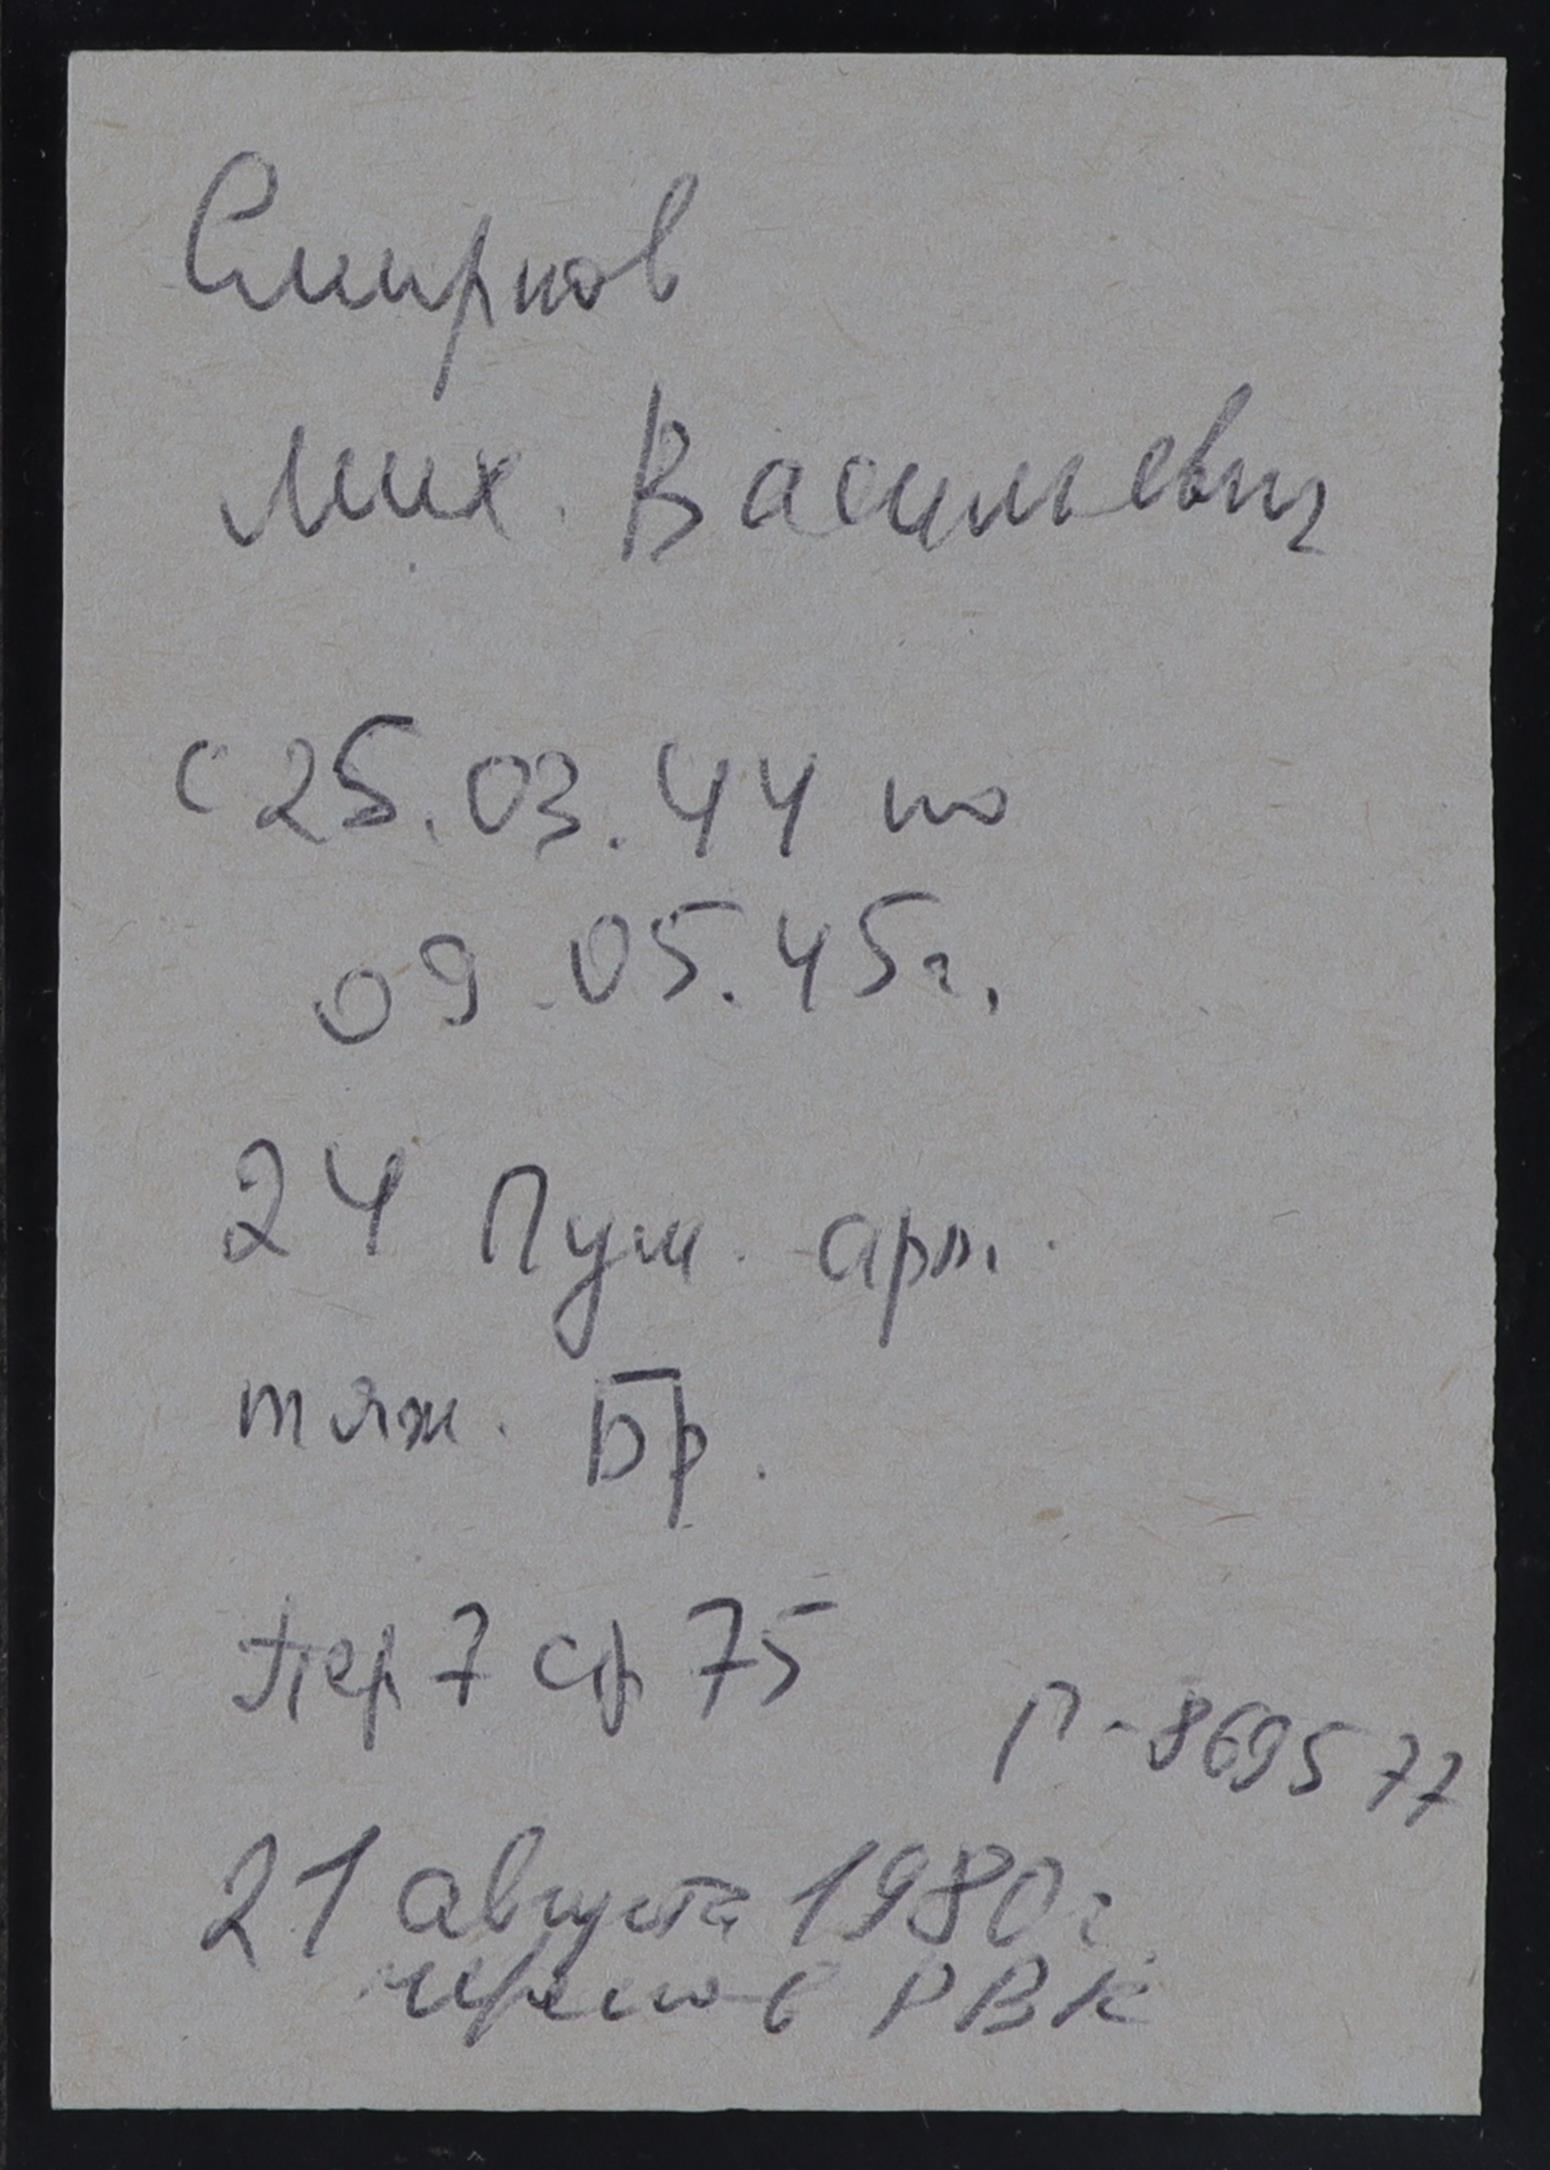 Смирнов
Мих. Васильевич
с 25.03.44 по
09.05.45г.
24 Пуш. арт.
тяж. Бр.
пер 7 сф 75
П-869577
21 августа 1980г.
в РВК